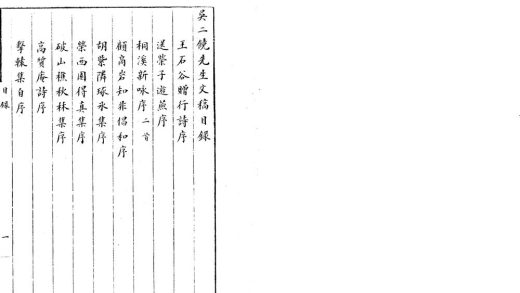 吳二鐃先生文稿目錄
王石谷贈行詩序
送榮子遊燕序
桐溪新咏序二首
顧高岩知非倡和序
胡縈隣琢氷集序
榮西園得真集序
破山樵秋林集序
高質庵詩序
擊轅集自序
目錄
一